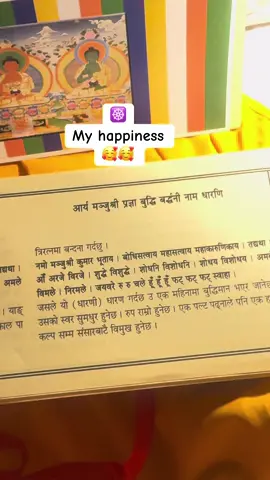 My happiness
आर्य मञ्जुश्री प्रज्ञा बुद्धि बर्द्धनी नाम धारणि
त्रिरत्नमा बन्दना गर्दछु ।
नमो मञ्जुश्री कुमार भूताय । बोधिसत्वाय महासत्वाय महाकारुणिकाय । तद्यथा
ॐ अरजे विरजे । शुद्धे विशुद्धे । शोधनि विशोधनि । शोधय विशोधय । अमले
विमले । निरमले । जयवरे रु रु चले हूँ हूँ हूँ फट् फट् फट् स्वाहा ।
जसले यो (धारणी) धारण गर्दछ उ एक महिनामा बुद्धिमान भएर जानेछ
उसको स्वर सुमधुर हुनेछ । रुप राम्रो हुनेछ । एक पल्ट पढ्नाले पनि एक ह
कल्प सम्म संसारबाटै विमुख हुनेछ ।
द्यथा ।
अमले
याङ्
काल पा